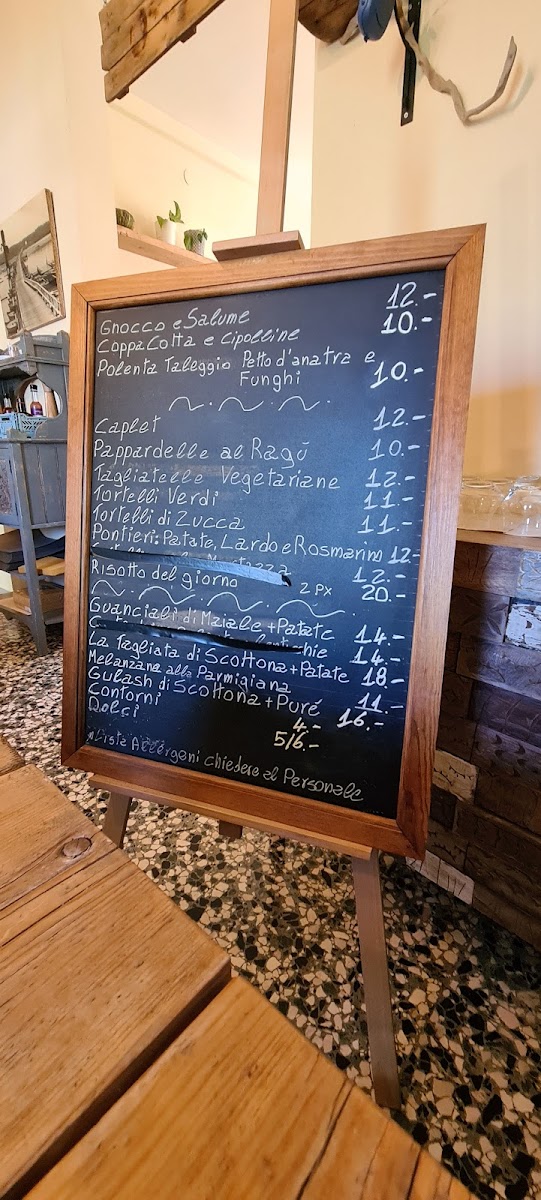 Gnocco e Salume 12.-
Coppa Cotta e Cipolline 10.-
Polenta Taleggio Petto d'anatra e
Funghi 10.-
Caplet 12.-
Pappardelle al Ragū 10.-
Tagliatelle Vegetariane 12.-
Tortelli Verdi 11.-
Tortelli di Zucca 11.-
Pontieri: Patate, Lardo e Rosmarino 12-
12.-
Risotto del giorno 2 Px 20.-
Guanciali di Maiale + Patate 14.-
14.-
La Tagliata di Scottona + Patate 18.-
Melanzane alla Parmigiana 11.-
Gulash di Scottona + Puré 16.-
Contorni 4.-
Dolci 5/6.-
Lista Allergeni chiedere al Personale